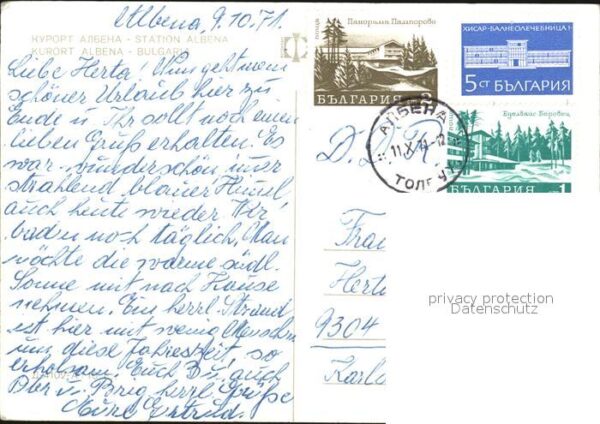 Albena, 9.10.71.
КУРОРТ АЛБЕНА - STATION ALBENA
KURORT ALBENA - BULGARIA
Liebe Herta! Nun geht mein
schöner Urlaub hier zu
Ende u. Ihr sollt noch einen
lieben Gruß erhalten! Es
war wunderschön, nur
strahlend blauer Himmel,
auch heute wieder. Wir
baden noch täglich. Man
möchte die warme südl.
Sonne mit nach Hause
nehmen. Ein herrl. Strand
ist hier mit wenig Menschen
um diese Jahreszeit, so
erholsam. Euch Du, auch
u. Brig. herrl. Grüße
Eure Gertrud.
ПОЩА
Панорама Пампорово
2
БЪЛГАРИЯ
ХИСАР-БАЛНЕОЛЕЧЕБНИЦА
5 СТ БЪЛГАРИЯ
Боровец
БЪЛГАРИЯ
1
АЛБЕНА
11.X.71-12
ТОЛБУХ
D. D. R.
Frau
Herta
9304
Karl
privacy protection
Datenschutz